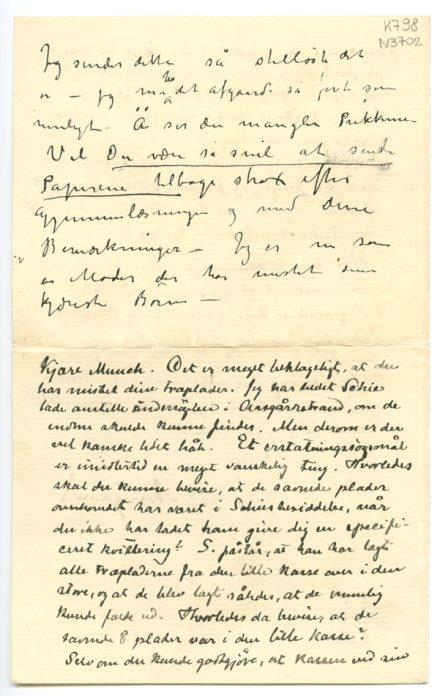 K798
N3702
Jeg sender dette så skelløst det
er – jeg må få det afgaarde så fort som
muligt. Å ser du mangler Prikkene
Vil Du være så snil at sende
Papirerne tilbage strax efter
Gjennemlæsningen og med dine
Bemærkninger – Jeg er nu som
en Moder der har mistet sine
kjæreste Børn –
Kjære Munch. Det er meget beklageligt, at du
har mistet dine træplader. Jeg har bedet Schie
lade anstille undersøgelser i Aasgårdstrand, om de
endnu skulde kunne findes. Men derom er der
vel kanske lidet håb. Et erstatningssøgsmål
er imidlertid en meget vanskelig ting. Hvorledes
skal du kunne bevise, at de savnede plader
overhovedet har været i Schies besiddelse, når
du ikke har ladet ham give dig en specifi-
ceret kvittering? S. påstår, at han har lagt
alle træpladerne fra den lille kasse over i den
store, og at de blev lagt således, at de umulig
kunde falde ud. Hvorledes da bevise, at de
savnede 8 plader var i den lille kasse?
Selv om du kunde godtgjøre, at kassen ved sin